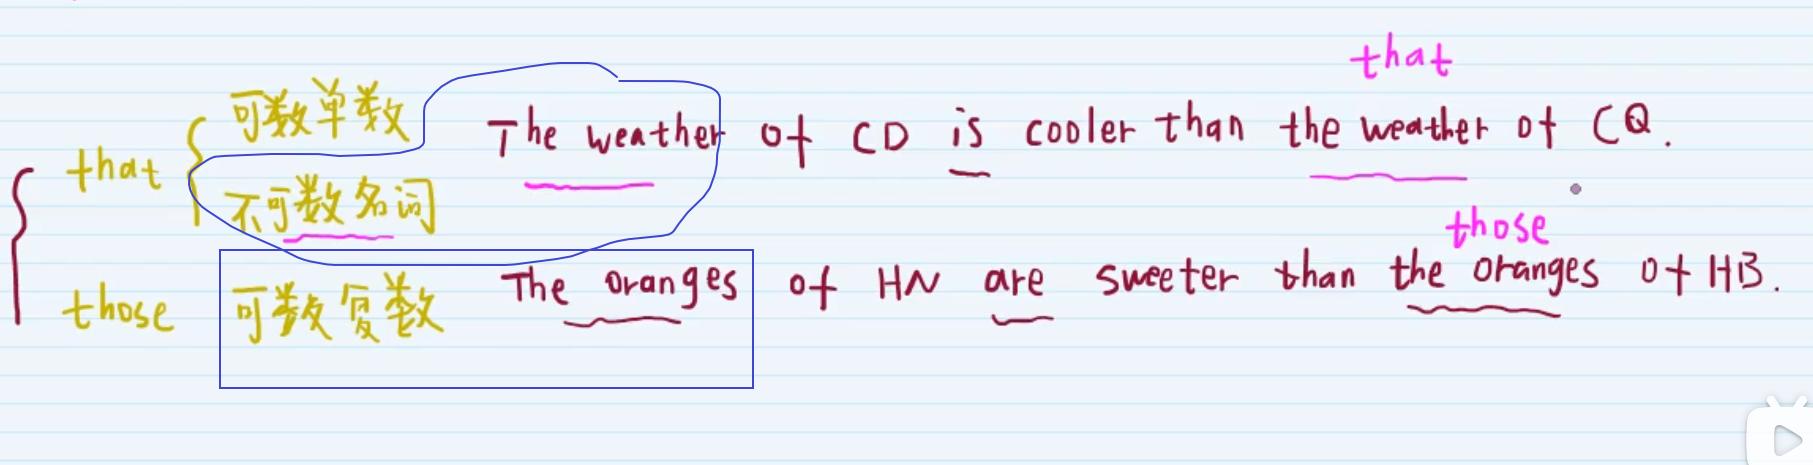 that
可数单数 The weather of CD is cooler than the weather of CQ.
that 不可数名词
those
those 可数复数 The oranges of HN are sweeter than the oranges of HB.